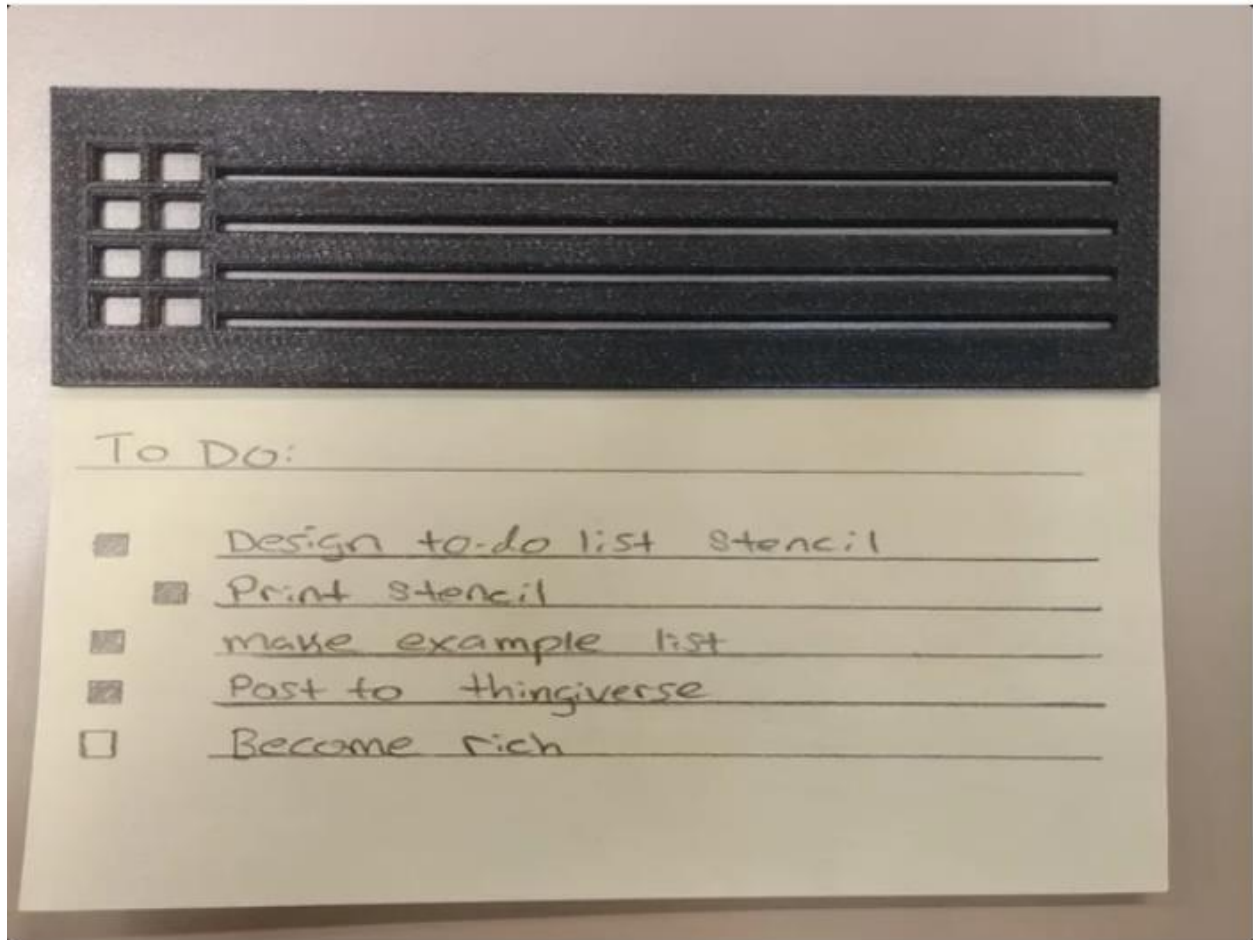 To Do:
Design to-do list stencil
Print stencil
make example list
Post to thingiverse
Become rich